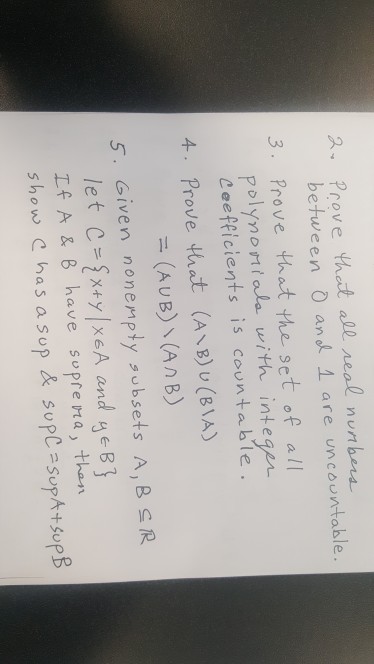 2. Prove that all real numbers
between 0 and 1 are uncountable.
3. Prove that the set of all
polynomials with integer
coefficients is countable.
4. Prove that (A\B)∪(B\A)
= (A∪B)\(A∩B)
5. Given nonempty subsets A, B ⊆ ℝ
let C = {x+y | x∈A and y∈B}
If A & B have suprema, then
show C has a sup & sup C = sup A + sup B